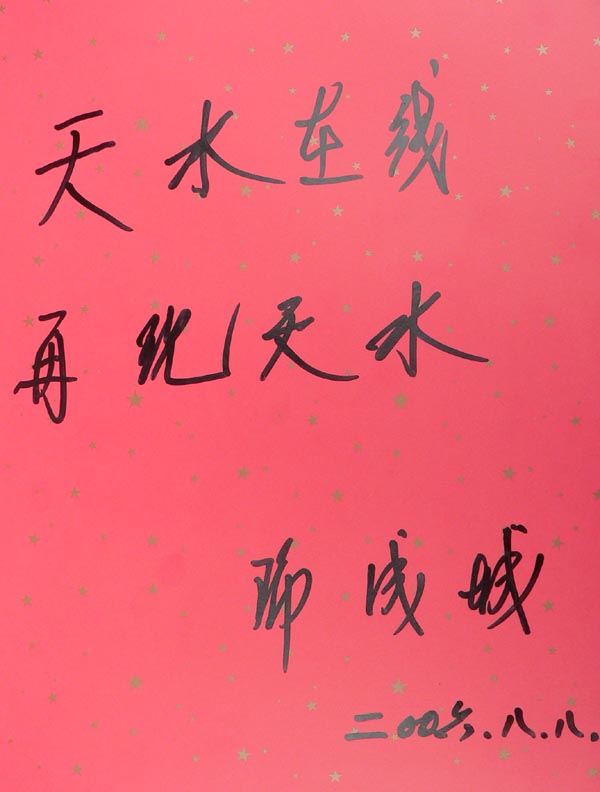 天水在线
再现天水
成城
二00六.八.八.